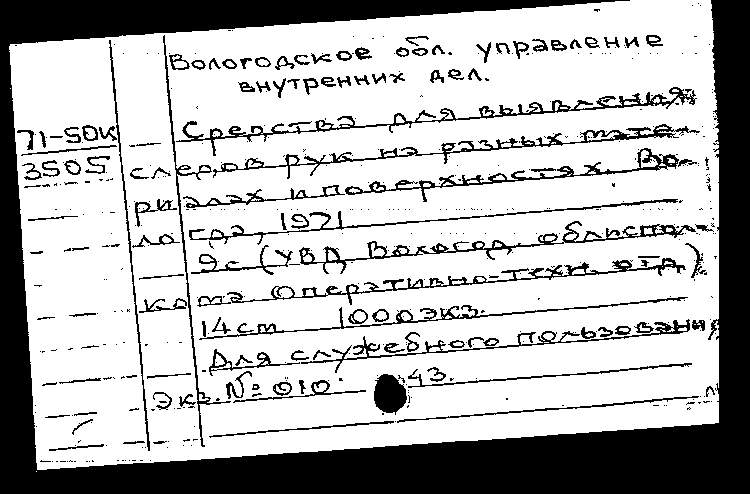 Вологодское обл. управление
внутренних дел.
71-50К
3505
Средства для выявления
следов рук на разных мате-
риалах и поверхностях. Во-
логда, 1971
9с (УВД Вологод. облиспол-
кома Оперативно-техн. отд)
14см 1000экз.
Для служебного пользовани
экз. №010. 43.